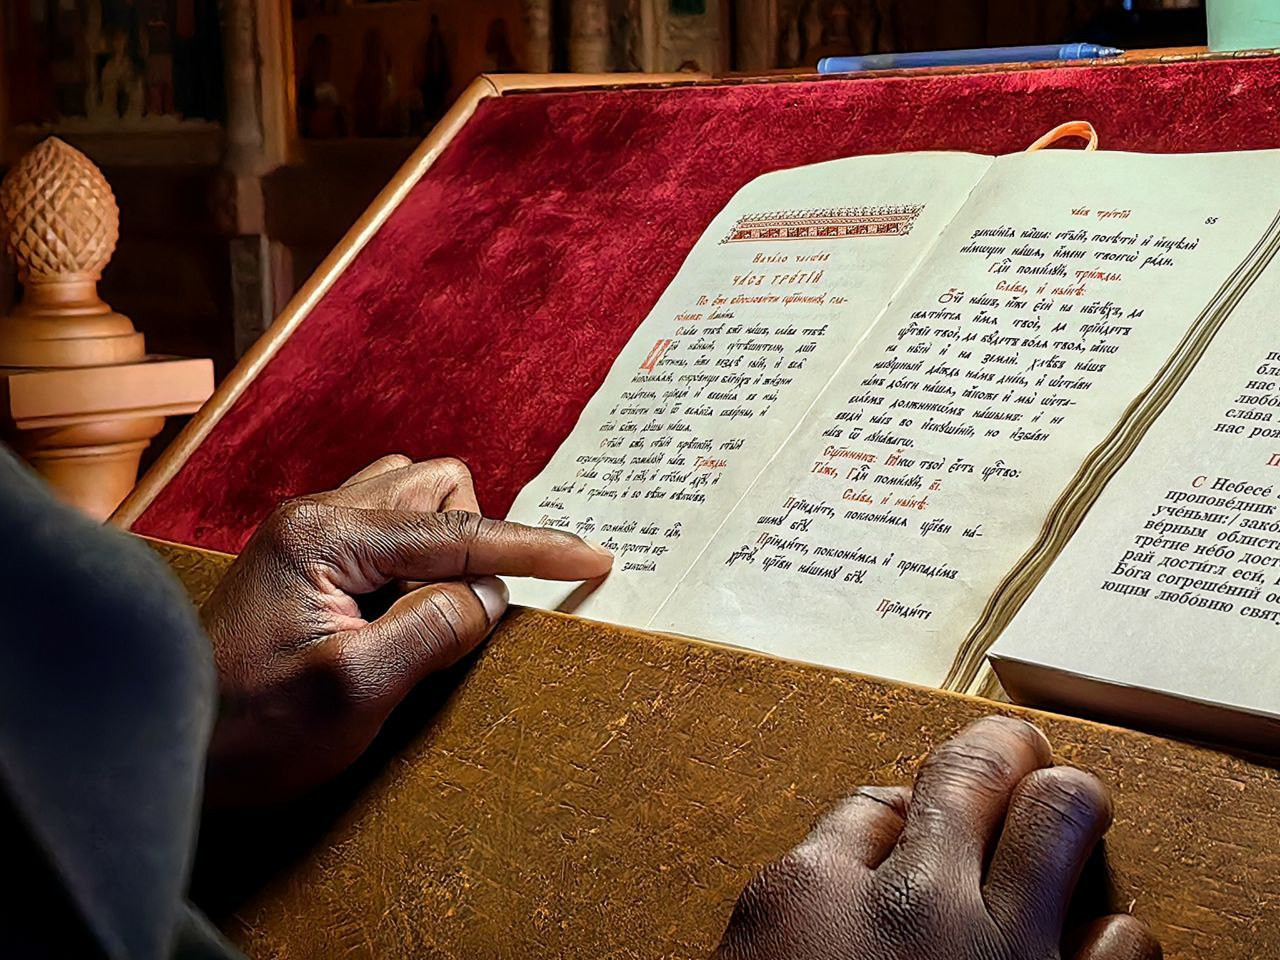 Нача́ло часѡ́въ
ЧА́СЪ ТРЕ́ТІЙ
По є҆́же бл҃гослови́ти сщ҃е́ннику, гла-
го́лемъ: А҆ми́нь.
Сла́ва тебѣ̀ бж҃е на́шъ, сла́ва тебѣ̀.
Цр҃ю̀ нбⷭ҇ный, ᲂу҆тѣ́шителю, дш҃е
и҆́стины, и҆́же вездѣ̀ сы́й, и҆ всѧ̑
и҆сполнѧ́ѧй, сокро́вище бл҃ги́хъ и҆ жи́зни
пода́телю, прїидѝ и҆ всели́сѧ въ ны̀,
и҆ ѡ҆чи́сти ны̀ ѿ всѧ́кїѧ скве́рны, и҆
сп҃сѝ бл҃же, дꙋ́шы на́шѧ.
Ст҃ы́й бж҃е, ст҃ы́й крѣ́пкїй, ст҃ы́й
безсме́ртный, поми́лꙋй на́съ. Три́жды.
Сла́ва ѻ҆ц҃ꙋ̀, и҆ сн҃ꙋ, и҆ ст҃о́мꙋ дх҃ꙋ, и҆
ны́нѣ и҆ при́снѡ, и҆ во вѣ́ки вѣкѡ́въ,
а҆ми́нь.
Прест҃а́ѧ трⷪ҇це, поми́лꙋй на́съ: гдⷭ҇и,
прости́ без-
закѡ́нїѧ
ча́съ тре́тїй
85
закѡ́нїѧ на̑ша: ст҃ы́й, посѣтѝ и҆ и҆сцѣлѝ
не́мѡщи на́шѧ, и҆́мене твоегѡ̀ ра́ди.
Гдⷭ҇и поми́лꙋй, три́жды.
Сла́ва, и҆ ны́нѣ:
Ѻ҆́ч҃е на́шъ, и҆́же є҆сѝ на нб҃сѣ́хъ, да
свѧти́тсѧ и҆́мѧ твоѐ, да прїи́детъ
црⷭ҇твїе твоѐ, да бꙋ́детъ во́лѧ твоѧ̀, ꙗ҆́кѡ
на нб҃сѝ и҆ на землѝ. Хлѣ́бъ на́шъ
насꙋ́щный да́ждь на́мъ дне́сь, и҆ ѡ҆ста́ви
на́мъ до́лги на́шѧ, ꙗ҆́коже и҆ мы̀ ѡ҆ста-
влѧ́емъ должникѡ́мъ на́шымъ: и҆ не
введѝ на́съ во и҆скꙋше́нїе, но и҆зба́ви
на́съ ѿ лꙋка́вагѡ.
Сщ҃е́нникъ: Ꙗ҆́кѡ твоѐ є҆́сть црⷭ҇тво:
Та́же, Гдⷭ҇и поми́лꙋй, в҃і.
Сла́ва, и҆ ны́нѣ:
Прїиди́те, поклони́мсѧ цр҃е́ви на́-
шемꙋ бг҃ꙋ.
Прїиди́те, поклони́мсѧ и҆ припаде́мъ
хрⷭ҇тꙋ̀, цр҃е́ви на́шемꙋ бг҃ꙋ.
Прїиди́те
по
бла
нас
любо́
сла́ва
нас рож
С Небесе́
пропове́дник
уче́ньми:/ зако́
ве́рным облиста
тре́тие не́бо дост
рай достигл еси,
Бо́га согреше́ний ос
ющим любо́вию свят